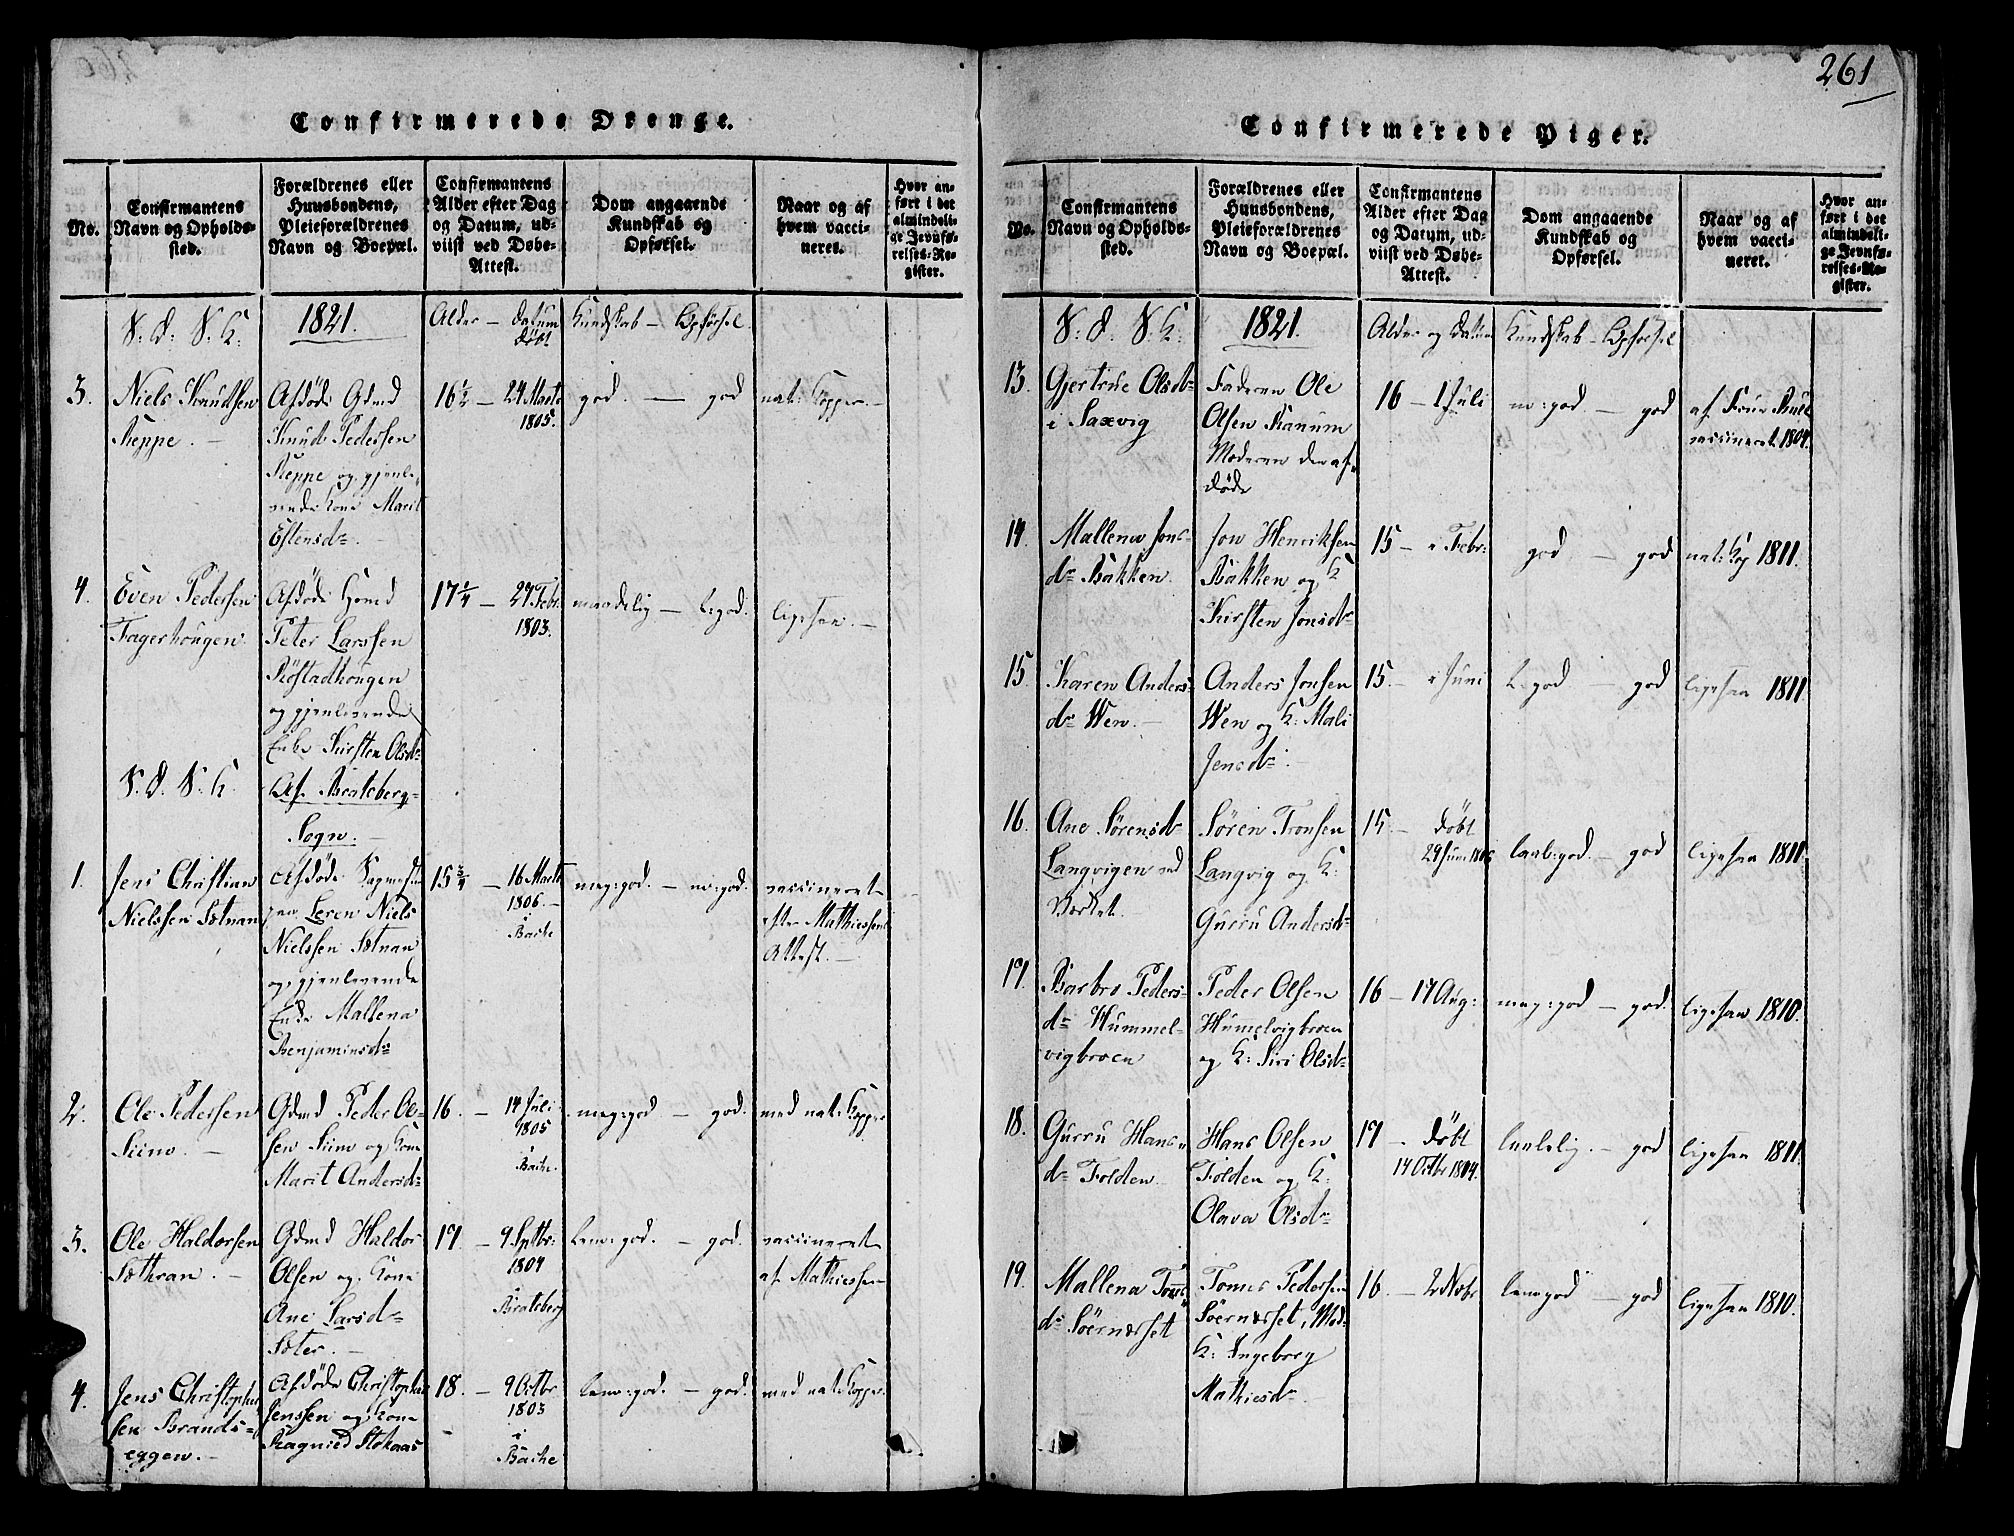 Confirmerede Drenge.
No.
Confirmantens
Navn og Opholds-
sted.
Forældrenes eller
Huusbondens,
Pleieforældrenes
Navn og Boepæl.
Confirmantens
Alder efter Dag
og Datum, ud-
viist ved Døbe-
Attest.
Dom angaaende
Kundskab og
Opførsel.
Naar og af
hvem vacci-
neret.
Hvor an-
ført i det
almindeli-
ge Jevnfø-
relses-Re-
gister.
N: d: N: K:
1821.
Alder — Datum
døbt
Kundskab — Opførsel
3.
Niels Knudsen
Reppe. —
Afdøde Gdmd
Knud Pedersen
Reppe og gjenle-
vende Kone Marit
Estensdr
16½ — 24 Marts
1805.
god. — god
nat: Kopper. —
4.
Even Pedersen
Fagerhougen
Afdøde Hsmd
Peter Larssen
Røstadhougen
og gjenlevende
Enke Kirsten Olsdr
17¼ — 27 Febr.
1803.
maadelig — t: god.
ligesaa. —
N. d. N. K.
Af Brateberg-
Sogn. —
1.
Jens Christian
Nielssen Sotnan
Afdøde
Leren Niels
Nielssen Sotnan
og gjenlevende
Enke Mallena
Benjaminsdr
15¾ — 16 Marts
1806. —
i
Bache
meg: god. — m: god.
vaccineret
efter Mathiessens
Attest. —
2.
Ole Pedersen
Siimo. —
Gdmd Peder Ol-
sen Siimo og Kone
Marit Andersdr
16. — 14 Juli
1805
i
Bache.
meg: god — god.
med nat: Kopper
3.
Ole Haldorsen
Sothran. —
Gdmd Haldor
Olsen og Kone
Ane Larsdr
Soter. —
17 — 9 Sptbr:
1804
i
Brateberg
temk: god. — god.
vaccineret
af Mathiessen
4.
Jens Christopher-
sen Brands-
eggen. —
Afdøde Christopher
Jenssen og Kone
Ragnied Stokaas
18. — 9 Octbr
1803
i
Bache
temk: god. — god.
med nat: Kopper.
261
Confirmerede Piger.
No.
Confirmantens
Navn og Opholds-
sted.
Forældrenes eller
Huusbondens,
Pleieforældrenes
Navn og Boepæl.
Confirmantens
Alder efter Dag
og Datum, ud-
viist ved Døbe-
Attest.
Dom angaaende
Kundskab og
Opførsel.
Naar og af
hvem vacci-
neret.
Hvor an-
ført i det
almindeli-
ge Jevnfø-
relses-Re-
gister.
N: d. N: K:
1821.
Alder og Datum
Kundskab — Opførsel
13.
Gjertrue Olsdr
i Saxvig
Faderen Ole
Olsen Ranum
Moderen der af-
døde
16 — 1 Juli
m: god. — god
af Frue Buel
vaccineret 1804.
14.
Mallena Jons-
dr Bakken.
Jon Henriksen
Bakken og K
Kirsten Jonsdr
15 — i Febr:
god — god
nat: Kop 1811.
15.
Karen Anders-
dr Wen. —
Anders Jonsen
Wen og K: Mali
Jensdr —
15. — i Juni
t: god — god
ligesaa 1811.
16.
Ane Sørensdr
Langvigen ved
Søren Tronsen
Langvig og K:
Gurru Andersdr
15 — døbt
29 Juni 1806
taal: god. — god
ligesaa 1811.
17.
Barbro Peders-
dr Hummel-
vigbroen
Peder Olsen
Humelvigbroen
og K: Siri Olsdr
16 — 17 Aug:
meg: god — god.
ligesaa 1810.
18.
Gurru Hans-
dr Folden
Hans Olsen
Folden og K:
Olava Olsdr
17 — døbt
14 Octbr 1804.
taalelig. — god
ligesaa 1811.
19.
Mallena Toms-
dr Söernæsset
Tomas Pedersen
Söernæsset, Mod-
K: Ingeborg
Mathiesdr
16. — 2 Nvbr
temk: god — god
ligesaa 1810.